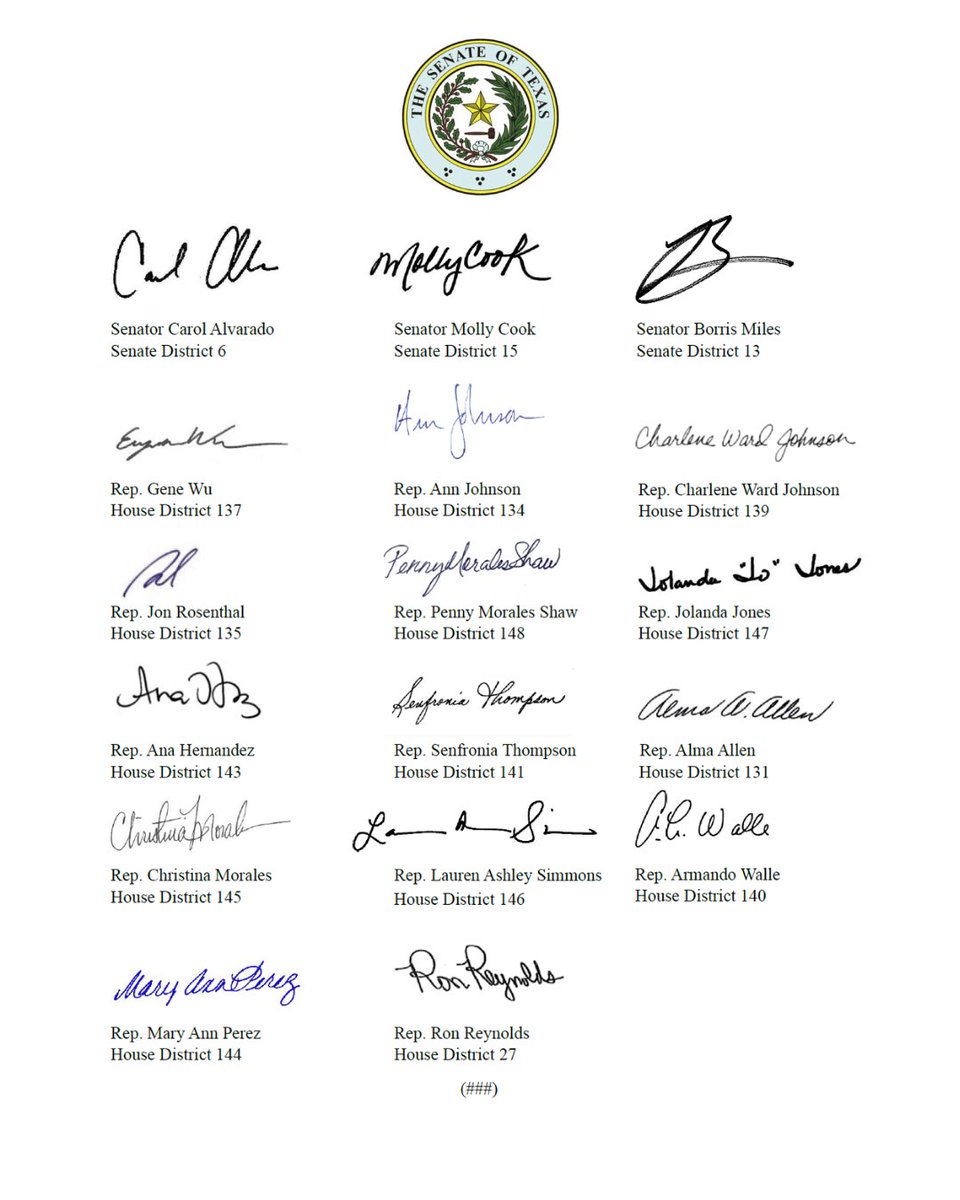 THE SENATE OF TEXAS
Carol Alvarado
Molly Cook
Senator Carol Alvarado
Senate District 6
Senator Molly Cook
Senate District 15
Senator Borris Miles
Senate District 13
Ann Johnson
Charlene Ward Johnson
Rep. Gene Wu
House District 137
Rep. Ann Johnson
House District 134
Rep. Charlene Ward Johnson
House District 139
Penny Morales Shaw
Jolanda "Jo" Jones
Rep. Jon Rosenthal
House District 135
Rep. Penny Morales Shaw
House District 148
Rep. Jolanda Jones
House District 147
Ana
Senfronia Thompson
Alma A. Allen
Rep. Ana Hernandez
House District 143
Rep. Senfronia Thompson
House District 141
Rep. Alma Allen
House District 131
Christina Morales
A.C. Walle
Rep. Christina Morales
House District 145
Rep. Lauren Ashley Simmons
House District 146
Rep. Armando Walle
House District 140
Mary Ann Perez
Ron Reynolds
Rep. Mary Ann Perez
House District 144
Rep. Ron Reynolds
House District 27
(###)